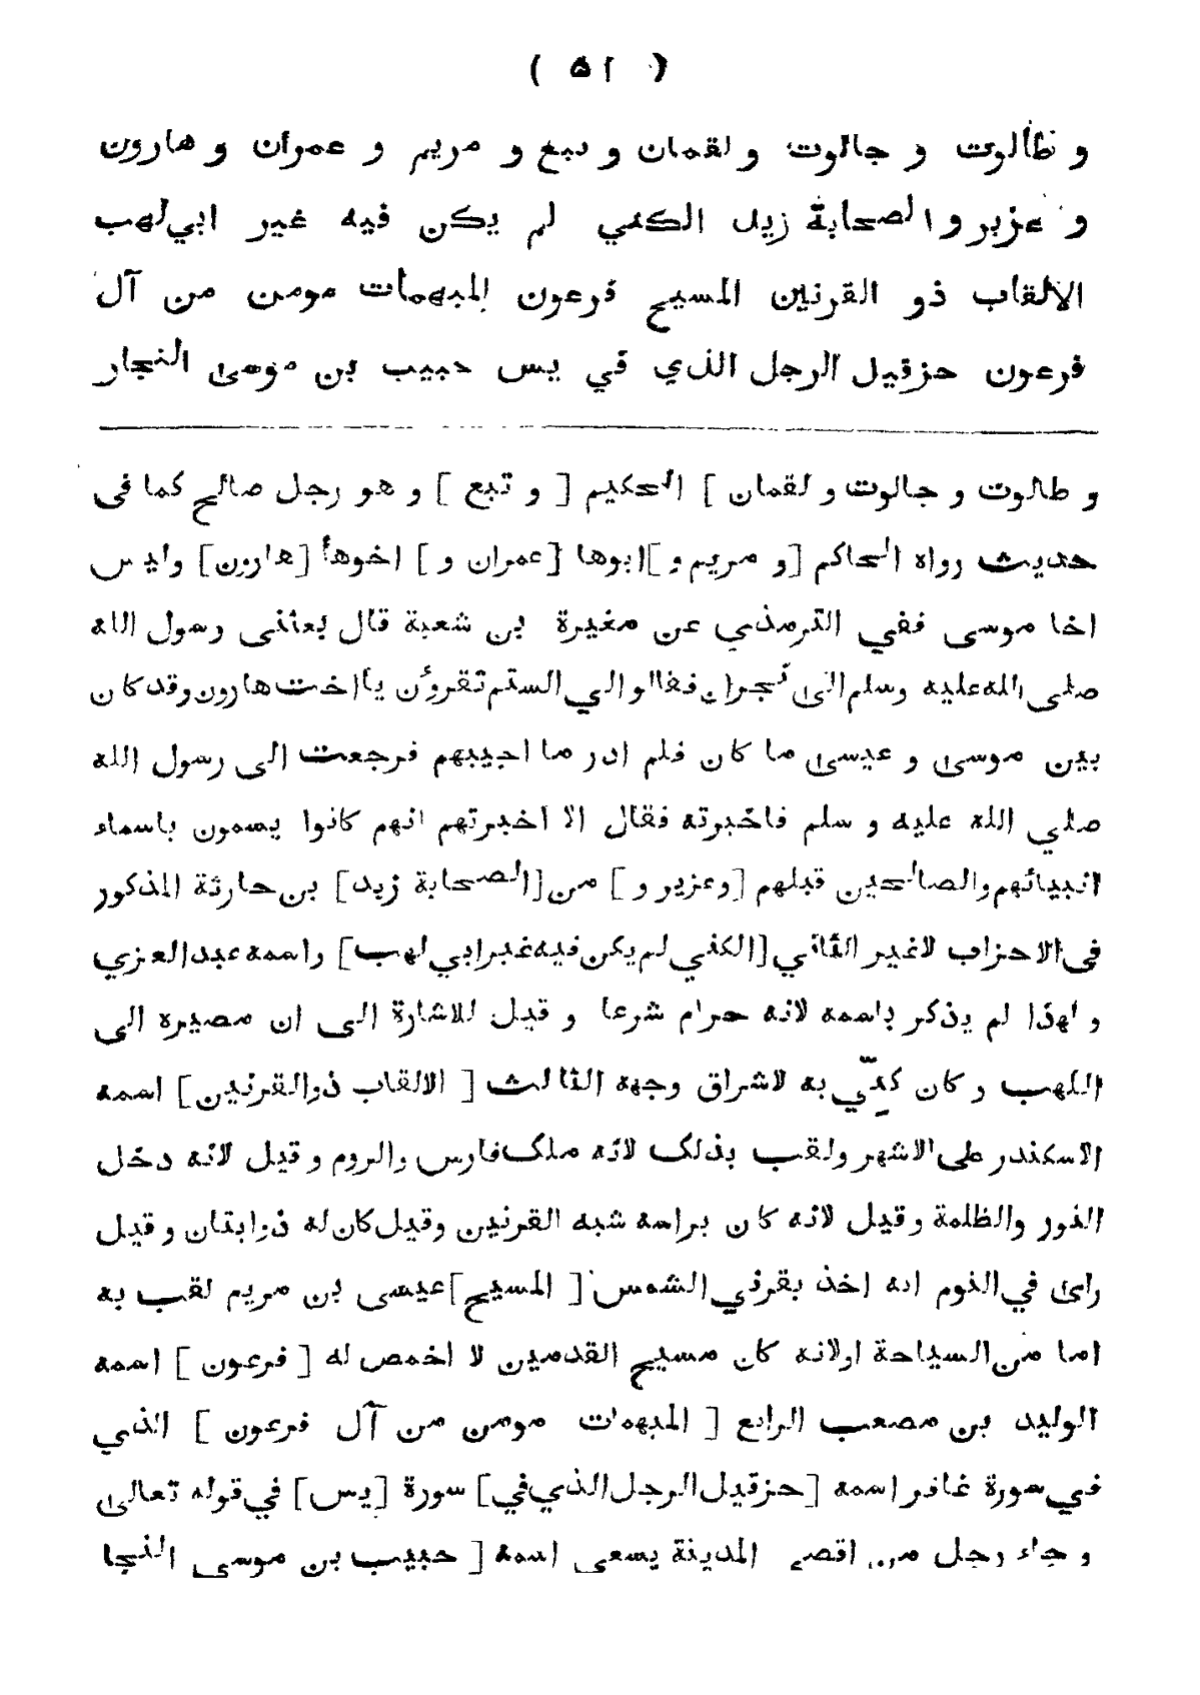 ( ٥١ )
و طالوت و جالوت و لقمان و تبع و مريم و عمران و هارون
و عزير و الصحابة زيد الكني لم يكن فيه غير ابي لهب
الالقاب ذو القرنين المسيح فرعون المبهمات مومن من آل
فرعون حزقيل الرجل الذي في يس حبيب بن موسى النجار
و طالوت و جالوت و لقمان ] الحكيم [ و تبع ] و هو رجل صالح كما فى
حديث رواه الحاكم [و مريم و ]ابوها [عمران و ] اخوها [هارون] وليس
اخا موسى ففي الترمذي عن مغيرة بن شعبة قال بعثنى رسول الله
صلى الله عليه وسلم الى نجران فقالوا لي الستم تقرؤن يا اخت هارون وقد كان
بين موسى و عيسى ما كان فلم ادر ما اجيبهم فرجعت الى رسول الله
صلي الله عليه و سلم فاخبرته فقال الا اخبرتهم انهم كانوا يسمون باسماء
انبيائهم والصالحين قبلهم [وعزير و ] من [الصحابة زيد] بن حارثة المذكور
فى الاحزاب لاغير الثاني [الكني لم يكن فيه غير ابي لهب] واسمه عبد العزي
و لهذا لم يذكر باسمه لانه حرام شرعا و قيل للاشارة الى ان مصيره الى
اللهب و كان كنّي به لاشراق وجهه الثالث [ الالقاب ذو القرنين] اسمه
الاسكندر على الاشهر ولقب بذلك لانه ملك فارس والروم و قيل لانه دخل
النور والظلمة و قيل لانه كان براسه شبه القرنين وقيل كان له ذوابتان و قيل
راى في النوم انه اخذ بقرني الشمس [ المسيح ]عيسى بن مريم لقب به
اما من السياحة اولانه كان مسيح القدمين لا اخمص له [ فرعون ] اسمه
الوليد بن مصعب الرابع [ المبهمات مومن من آل فرعون ] الذي
في سورة غافر اسمه [حزقيل الرجل الذي في] سورة [يس] في قوله تعالى
و جاء رجل من اقصى المدينة يسعى اسمه [ حبيب بن موسى النجا